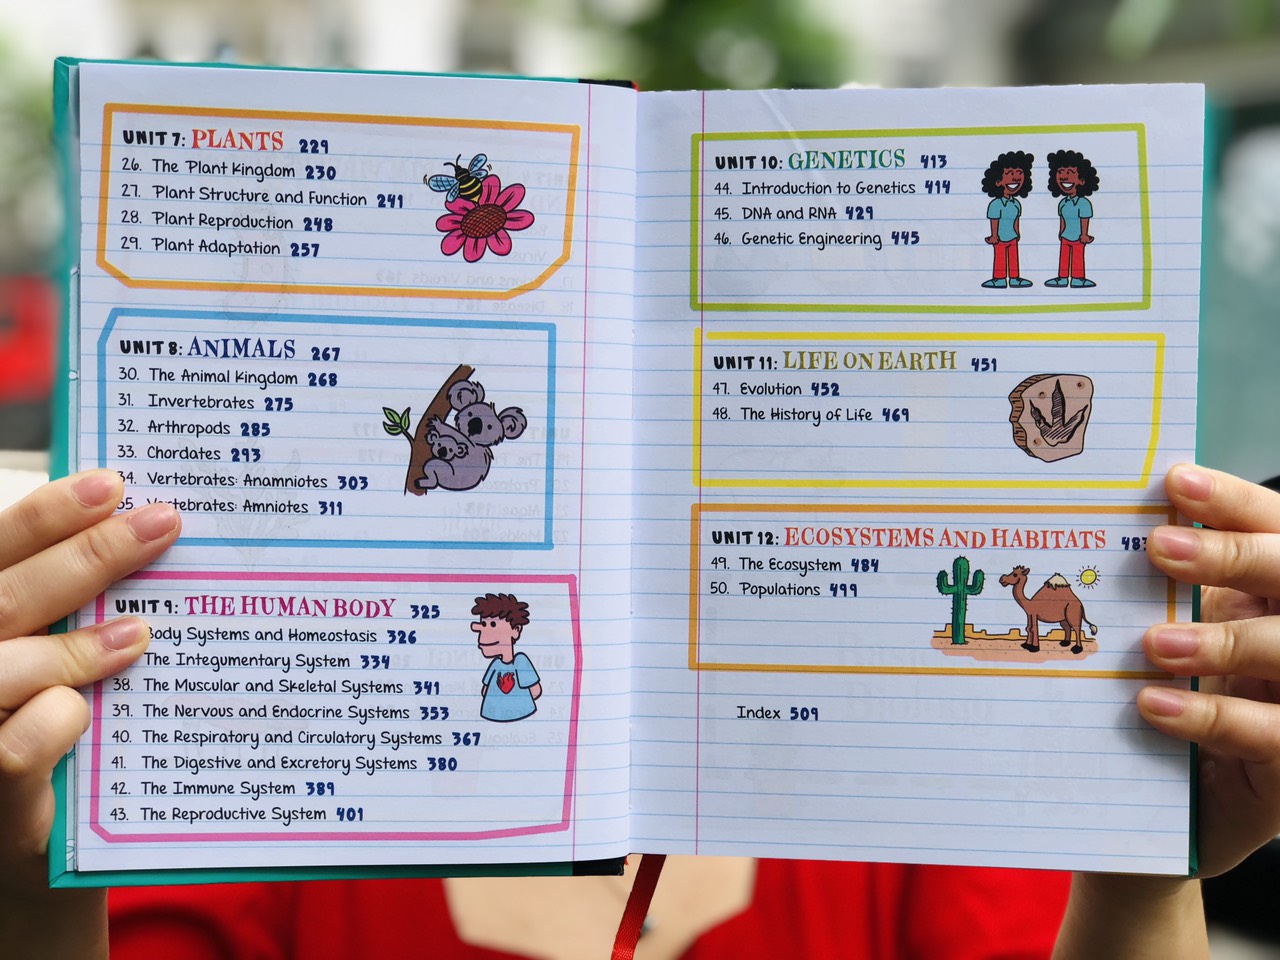 UNIT 7: PLANTS 229
26. The Plant Kingdom 230
27. Plant Structure and Function 241
28. Plant Reproduction 248
29. Plant Adaptation 257
UNIT 8: ANIMALS 267
30. The Animal Kingdom 268
31. Invertebrates 275
32. Arthropods 285
33. Chordates 293
34. Vertebrates: Anamniotes 303
35. Vertebrates: Amniotes 311
UNIT 9: THE HUMAN BODY 325
Body Systems and Homeostasis 326
The Integumentary System 334
38. The Muscular and Skeletal Systems 341
39. The Nervous and Endocrine Systems 353
40. The Respiratory and Circulatory Systems 367
41. The Digestive and Excretory Systems 380
42. The Immune System 389
43. The Reproductive System 401
UNIT 10: GENETICS 413
44. Introduction to Genetics 414
45. DNA and RNA 429
46. Genetic Engineering 445
UNIT 11: LIFE ON EARTH 451
47. Evolution 452
48. The History of Life 469
UNIT 12: ECOSYSTEMS AND HABITATS 483
49. The Ecosystem 484
50. Populations 499
Index 509